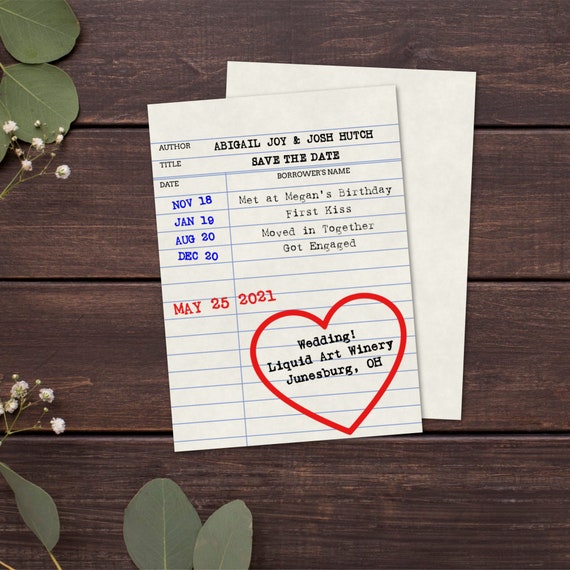 AUTHOR ABIGAIL JOY & JOSH HUTCH
TITLE SAVE THE DATE
DATE BORROWER'S NAME
NOV 18 Met at Megan's Birthday
JAN 19 First Kiss
AUG 20 Moved in Together
DEC 20 Got Engaged
MAY 25 2021
Wedding!
Liquid Art Winery
Junesburg, OH